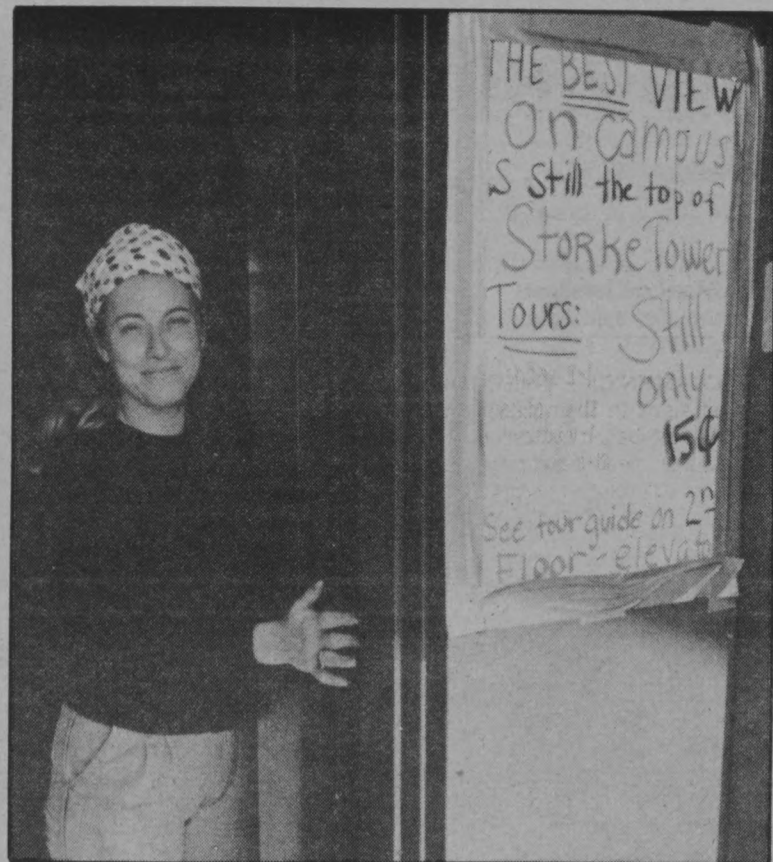 THE BEST VIEW
On Campus
is still the top of
Storke Tower
Tours: Still
only
15¢
See tour guide on 2nd
Floor - elevato